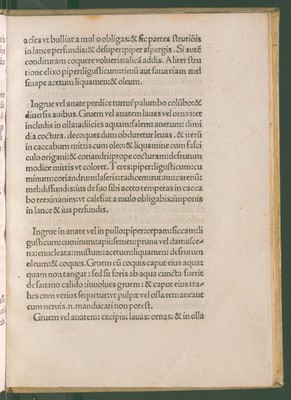 acies vt bulliat: amulo obligas: & sic partes strutiōis
in lance perfundis: & desuper: piper aspergis. Si autē
condituram coquere volueris: alicā addis. Aliter stru
tione elixo piper: ligusticum: timū aut satureiam: mel
sinape acetum liquamen: & oleum.
In grue vel anate perdice turture palumbo colūbo: &
diuersis auibus. Gruem vel anatem lauas vel ornas: et
includis in olla: adiicies aquam: salem: anetum: dimi
dia coctura. decoques dum obduretur: leuas. & iterū
in caccabum mittis cum oleo: & liquamine cum fasci
culo origani: & coriandri: prope cocturam: defrutum
modice mittis vt coloret. Teres: piper: ligusticum: cu
minum: coriandrum: laseris: radicem: rutam: carenū:
mel: diffundis: ius de suo sibi aceto temperas in cacca
bo reexinanies: vt calefiat amulo obligabis: imponis
in lance & ius perfundis.
In grue in anate vel in pullo: piper: cepam: siccam: li
gusticum: cuminum: apii: semen: pruna vel damasce
na: enucleata: mustum: acetum: liquamen: defrutum
oleum: & coques. Gruem cū coquis caput eius aquā
quam non tangat: sed sit foris ab aqua cuncta fuerit
de sauano calido: inuolues gruem: & caput eius tra
hes cum veruis sequetur: vt pulpæ vel ossa remaneant
cum neruis .n. manducari non potest.
Gruem vel anatem: excipis: lauas: ornas: & in olla